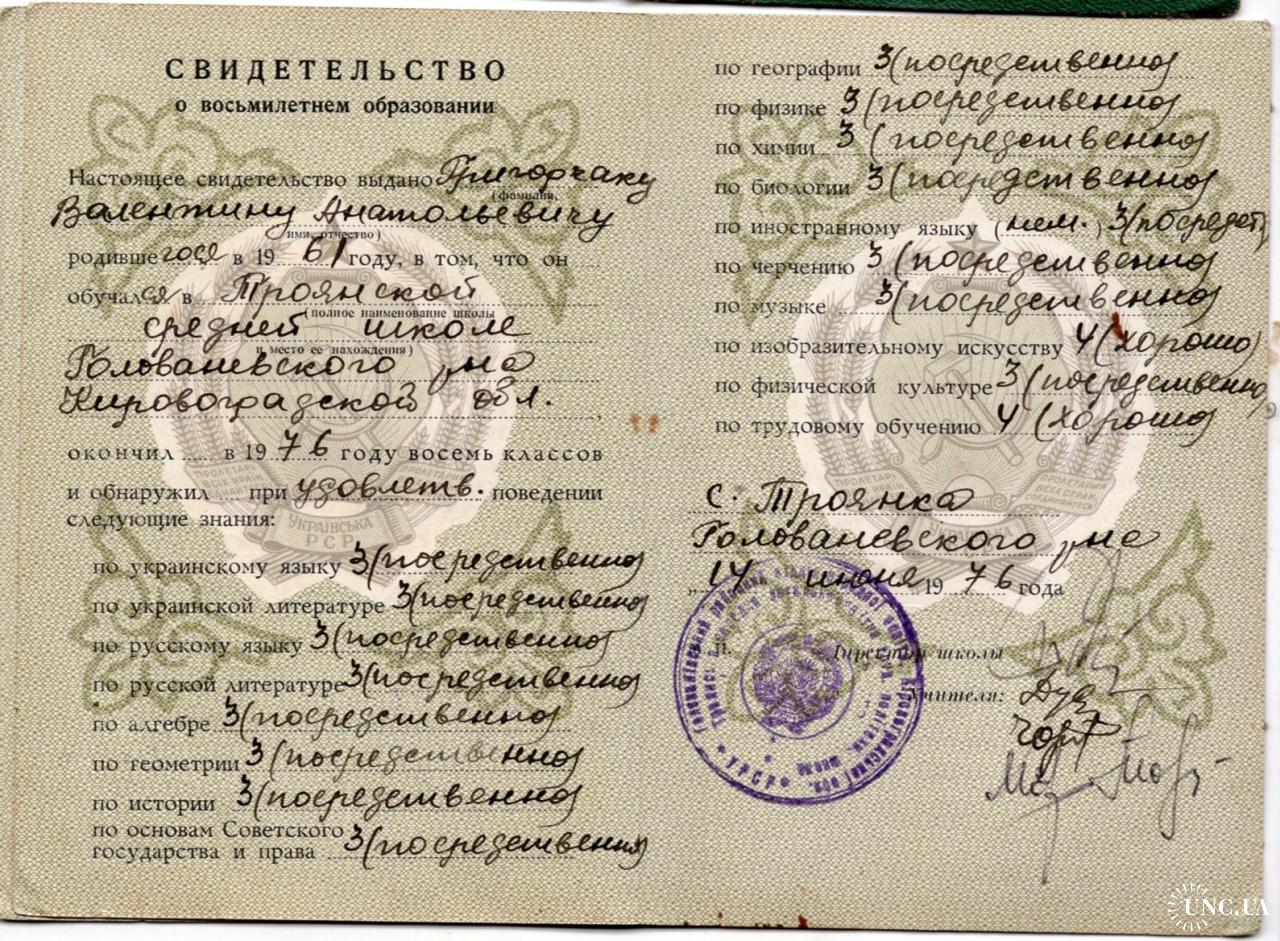 СВИДЕТЕЛЬСТВО
о восьмилетнем образовании
Настоящее свидетельство выдано Григорчаку
(фамилия,
Валентину Анатольевичу
имя, отчество)
родившегося в 1961 году, в том, что он
обучался в Троянской
(полное наименование школы
средней школе
и место ее нахождения)
Голованевского р-на
Кировоградской обл.
окончил в 1976 году восемь классов
и обнаружил при удовлетв. поведении
следующие знания:
УКРАЇНСЬКА
РСР
по украинскому языку 3 (посредственно)
по украинской литературе 3 (посредственно)
по русскому языку 3 (посредственно)
по русской литературе 3 (посредственно)
по алгебре 3 (посредственно)
по геометрии 3 (посредственно)
по истории 3 (посредственно)
по основам Советского
государства и права 3 (посредственно)
по географии 3 (посредственно)
по физике 3 (посредственно)
по химии 3 (посредственно)
по биологии 3 (посредственно)
по иностранному языку (нем.) 3 (посредст)
по черчению 3 (посредственно)
по музыке 3 (посредственно)
по изобразительному искусству 4 (хорошо)
по физической культуре 3 (посредственно)
по трудовому обучению 4 (хорошо)
с. Троянка
Голованевского р-на
„14 июня 1976 года
Директор школы
Учителя:
УРСР
UNC.UA